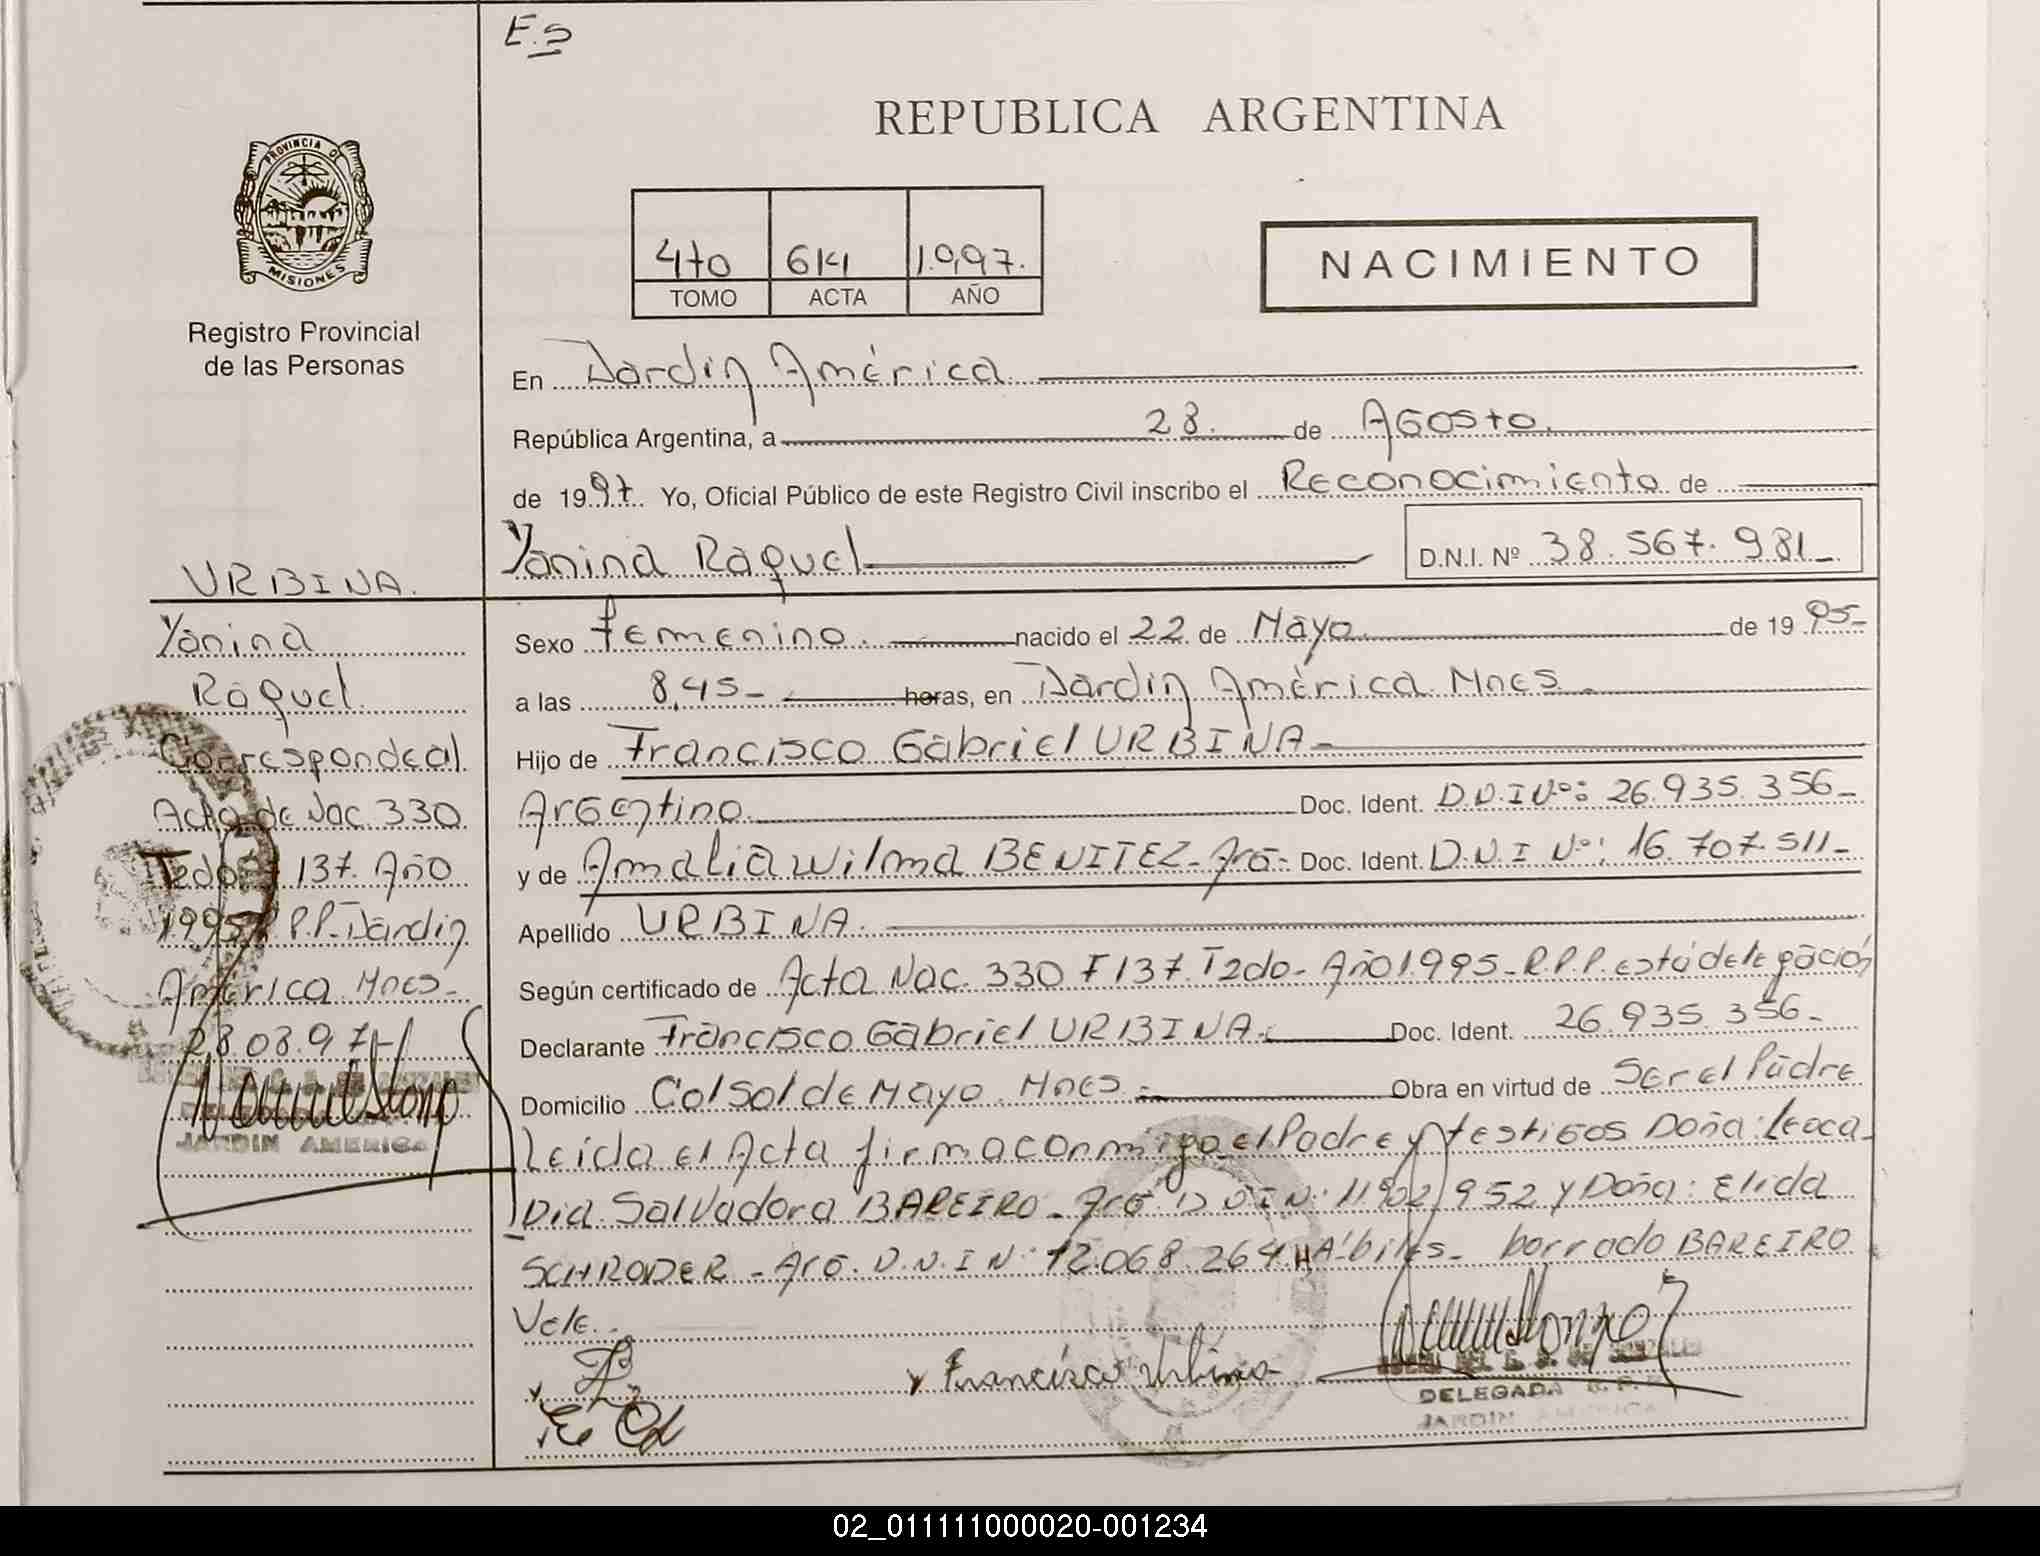 E.S
REPUBLICA ARGENTINA
PROVINCIA DE
MISIONES
Registro Provincial
de las Personas
470 614 1.997.
TOMO ACTA AÑO
NACIMIENTO
En Jardin América
República Argentina, a 28. de AGosto.
de 1997. Yo, Oficial Público de este Registro Civil inscribo el Reconocimiento de
Yanina Raquel D.N.I. Nº 38.567.981_
URBINA.
Yanina
Raquel
Corresponde al
Acta de Nac. 330
T2do. 137. Año
1.995 R.P.P. Jardin
América. Mnes_
28.08.97_
JARDIN AMERICA
Sexo femenino. nacido el 22 de Mayo de 1995_
a las 8,45_ horas, en Jardin América. Mnes.
Hijo de Francisco Gabriel URBINA_
ArGentino Doc. Ident. D.N.I Nº: 26.935.356_
y de Amalia Wilma BENITEZ_ Arg_ Doc. Ident. D.N.I Nº: 16.707.511_
Apellido URBINA.
Según certificado de Acta Nac. 330 F 137. T2do_ Año 1.995_ R.P.P. está delegación
Declarante Francisco Gabriel URBINA. Doc. Ident. 26.935.356_
Domicilio Col Sol de Mayo. Mnes. Obra en virtud de Ser el Padre
Leída el Acta firma conmigo el Padre y testiGos Doña: Leoca_
Dia Salvadora BAREIRO_ Arg. D.N.I N: 11.902.952 y Doña: Elida
SCHRODER_ Arg. D.N.I N: 12.068.264. HA'biles_ borrado BAREIRO
Vale.
Francisco Urbina
DELEGADA R.P.P.
JARDIN AMERICA
02_011111000020-001234